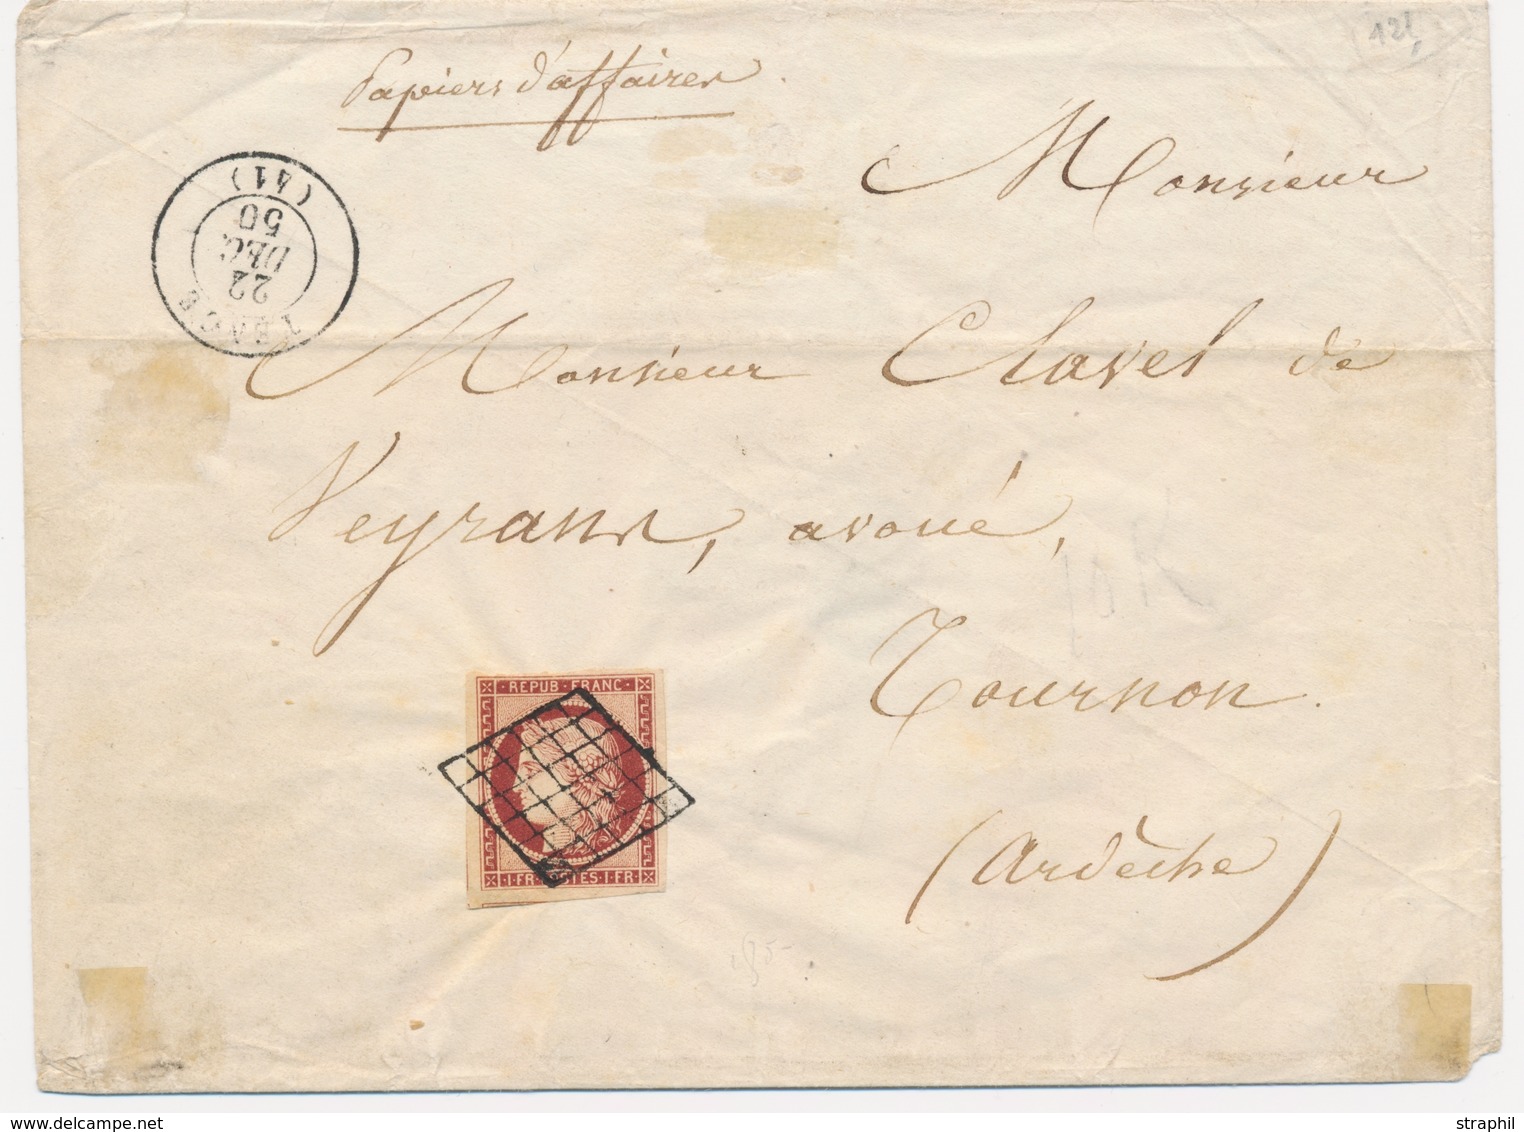 Papiers d'affaires
Monsieur
(41)
22
DEC.
50
Monsieur Clavel de
Veyrans, avoué,
Tournon.
(Ardèche)
REPUB·FRANC·
1·FR·POSTES·1·FR
straphil
www.delcampe.net